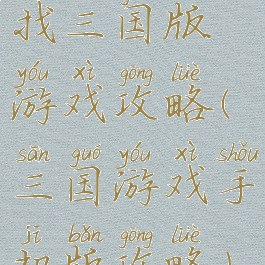 找三国版
yóu xì gōng lüè
游戏攻略(
sān guó yóu xì shǒu
三国游戏手
jī bǎn gōng lüè
机版攻略)